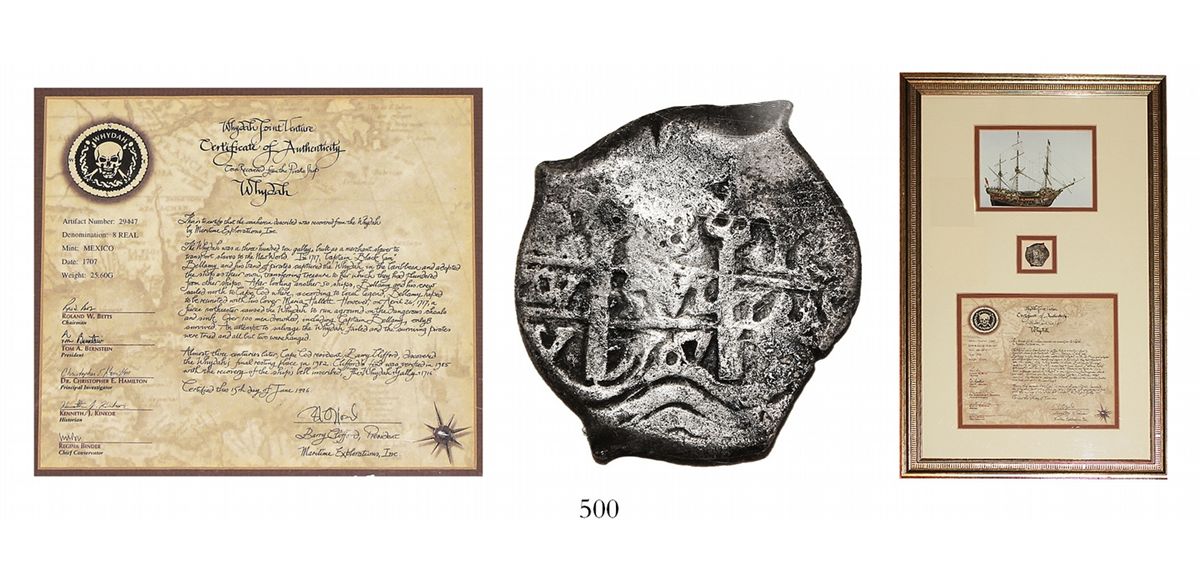 WHYDAH
Whydah Joint Venture
Certificate of Authenticity
Coin Recovered from the Pirate Ship
Whydah
Artifact Number: 29447
Denomination: 8 REAL
Mint: MEXICO
Date: 1707
Weight: 25.60G
ROLAND W. BETTS
Chairman
TOM A. BERNSTEIN
President
DR. CHRISTOPHER E. HAMILTON
Principal Investigator
KENNETH J. KINKOR
Historian
REGINA BINDER
Chief Conservator
This is to certify that the coin herein described was recovered from the Whydah
by Maritime Explorations, Inc.
The Whydah was a three hundred ton galley, built as a merchant slaver to
transport slaves to the New World. In 1717, Captain "Black Sam"
Bellamy, and his band of pirates captured the Whydah in the Caribbean and adopted
the ship as their own, transferring treasure to her which they had plundered
from other ships. After looting another 50 ships, Bellamy and his crew
sailed north to Cape Cod where, according to local legend, Bellamy hoped
to be reunited with his lover Maria Hallett. However, on April 26, 1717, a
fierce northeaster caused the Whydah to run aground on the dangerous shoals
and sink. Over 100 men drowned, including Captain Bellamy, only 8
survived. An attempt to salvage the Whydah failed and the surviving pirates
were tried and all but two were hanged.
Almost three centuries later, Cape Cod resident, Barry Clifford, discovered
the Whydah's final resting place in 1982. Clifford's find was verified in 1985
with the recovery of the ship's bell inscribed, "The Whydah Gally 1716"
Certified this 15th day of June 1996
Barry Clifford, President
Maritime Explorations, Inc.
500
Whydah Joint Venture
Certificate of Authenticity
Whydah